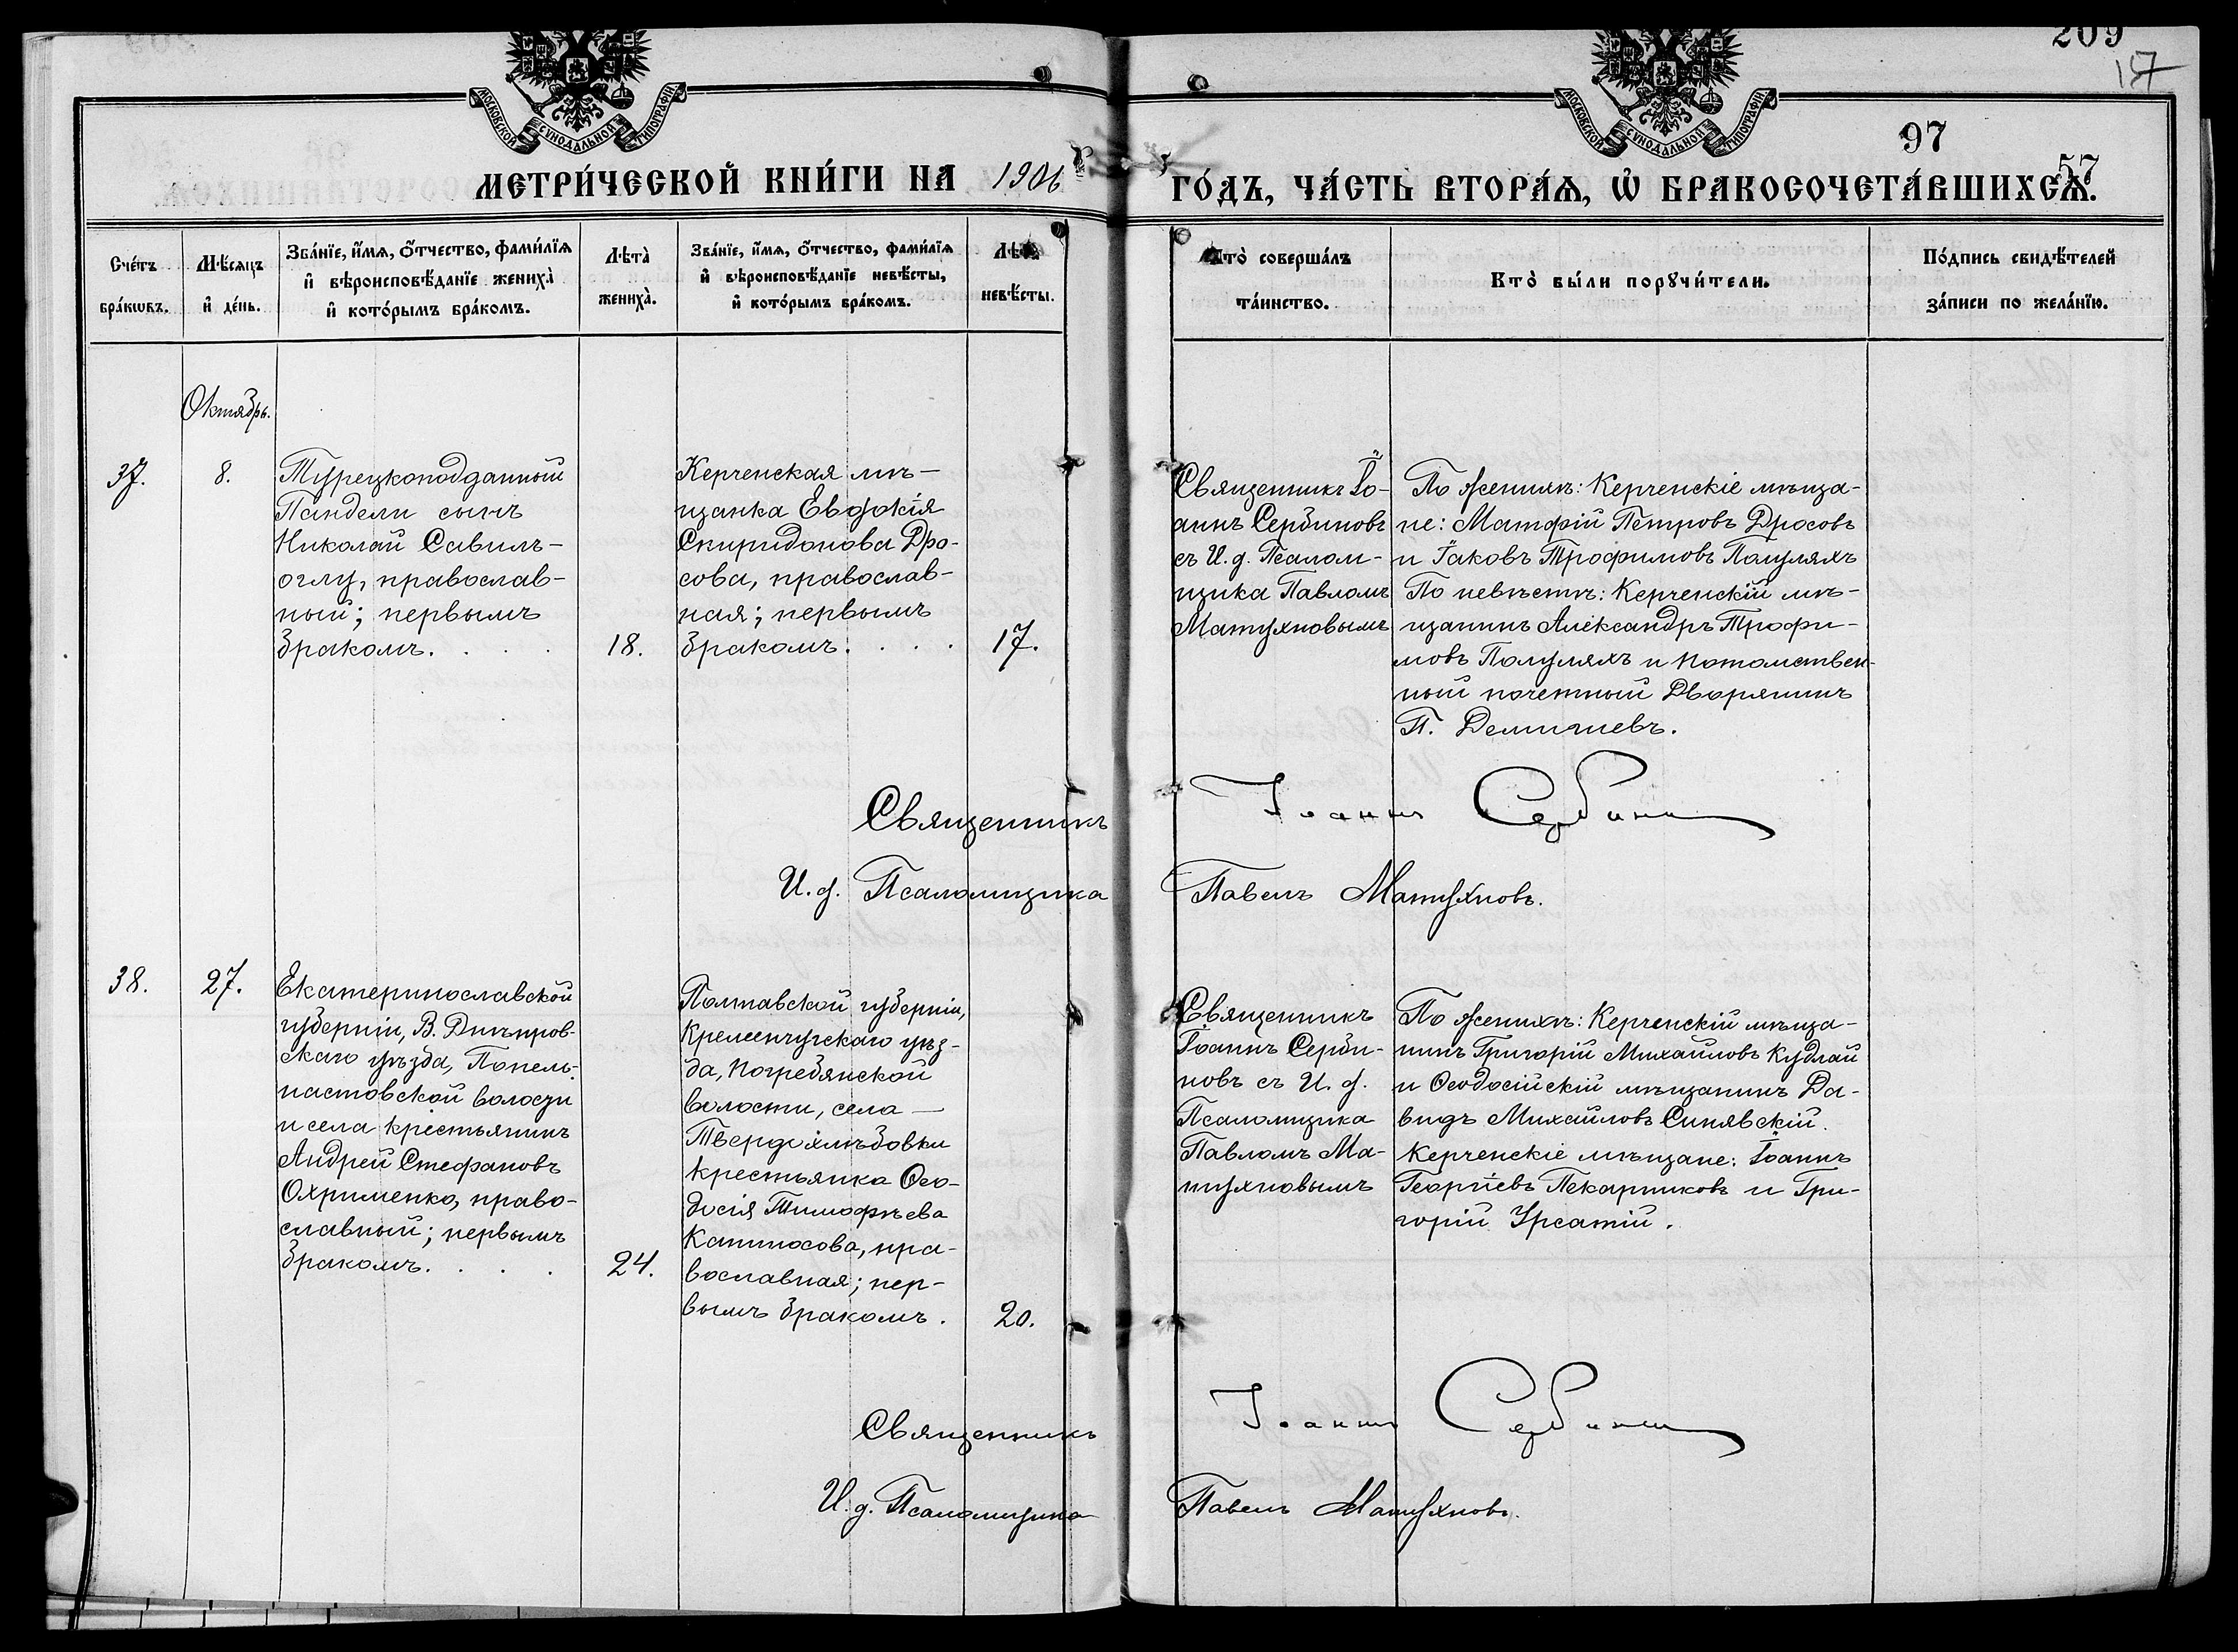 209
157
МОСКОВСКОЙ СѴНОДАЛЬНОЙ ТИПОГРАФІИ
МОСКОВСКОЙ СѴНОДАЛЬНОЙ ТИПОГРАФІИ
97
57
МЕТРИ́ЧЕСКОЙ КНИ́ГИ НА 1906 ГО́ДЪ, ЧА́СТЬ ВТОРА́Ѧ, Ѡ҆ БРАКОСОЧЕТА́ВШИХСѦ.
Сче́тъ
бра́кѡвъ.
Мѣ́сяцъ
и҆ де́нь.
Зва́нїе, и҆́мѧ, ѻ҆́тчество, фами́лїѧ
и҆ вѣроисповѣ́данїе жениха̀
и҆ кото́рымъ бра́комъ.
Лѣта̀
жениха̀.
Зва́нїе, и҆́мѧ, ѻ҆́тчество, фами́лїѧ
и҆ вѣроисповѣ́данїе невѣ́сты,
и҆ кото́рымъ бра́комъ.
Лѣта̀
невѣ́сты.
Кто̀ соверша́лъ
та́инство.
Кто̀ бы́ли порꙋчи́тели.
По́дпись свидѣ́телей
за́писи по жела́нїю.
Октябрь.
37.
8.
Турецкоподданный
Пандели сынъ
Николай Савилъ-
оглу, православ-
ный; первымъ
бракомъ. . . .
18.
Керченская мѣ-
щанка Евдокія
Спиридонова Дро-
сова, православ-
ная; первымъ
бракомъ. . . .
17.
Священникъ Іо-
аннъ Сербиновъ
съ И. д. Псалом-
щика Павломъ
Матухновымъ
По женихѣ: Керченскіе мѣща-
не: Матфій Петровъ Дросовъ
и Іаковъ Трофимовъ Полуляхъ
По невѣстѣ: Керченскій мѣ-
щанинъ Александръ Трофи-
мовъ Полуляхъ и потомствен-
ный почетный Дворянинъ
П. Демичіевъ.
Священникъ Іоаннъ Сербиновъ
И. д. Псаломщика Павелъ Матухновъ.
38.
27.
Екатеринославской
губерніи, В. Днѣпров-
скаго уѣзда, Попель-
настовской волости
и села крестьянинъ
Андрей Стефановъ
Охрименко, право-
славный; первымъ
бракомъ. . . .
24.
Полтавской губерніи,
Кременчугскаго уѣз-
да, Погребянской
волости, села -
Твердохлѣбовки
крестьянка Ѳео-
досія Тимофѣева
православная; пер-
вымъ бракомъ.
20.
Священникъ
Іоаннъ Серби-
новъ съ И. д.
Псаломщика
Павломъ Ма-
тухновымъ
По женихѣ: Керченскій мѣща-
нинъ Григорій Михайловъ Кудлай
и Ѳеодосійскій мѣщанинъ Да-
видъ Михайловъ Синявскій.
Керченскіе мѣщане: Іоаннъ
Георгіевъ Пекарниковъ и Гри-
горій Урсатій.
Священникъ Іоаннъ Сербиновъ
И. д. Псаломщика Павелъ Матухновъ.